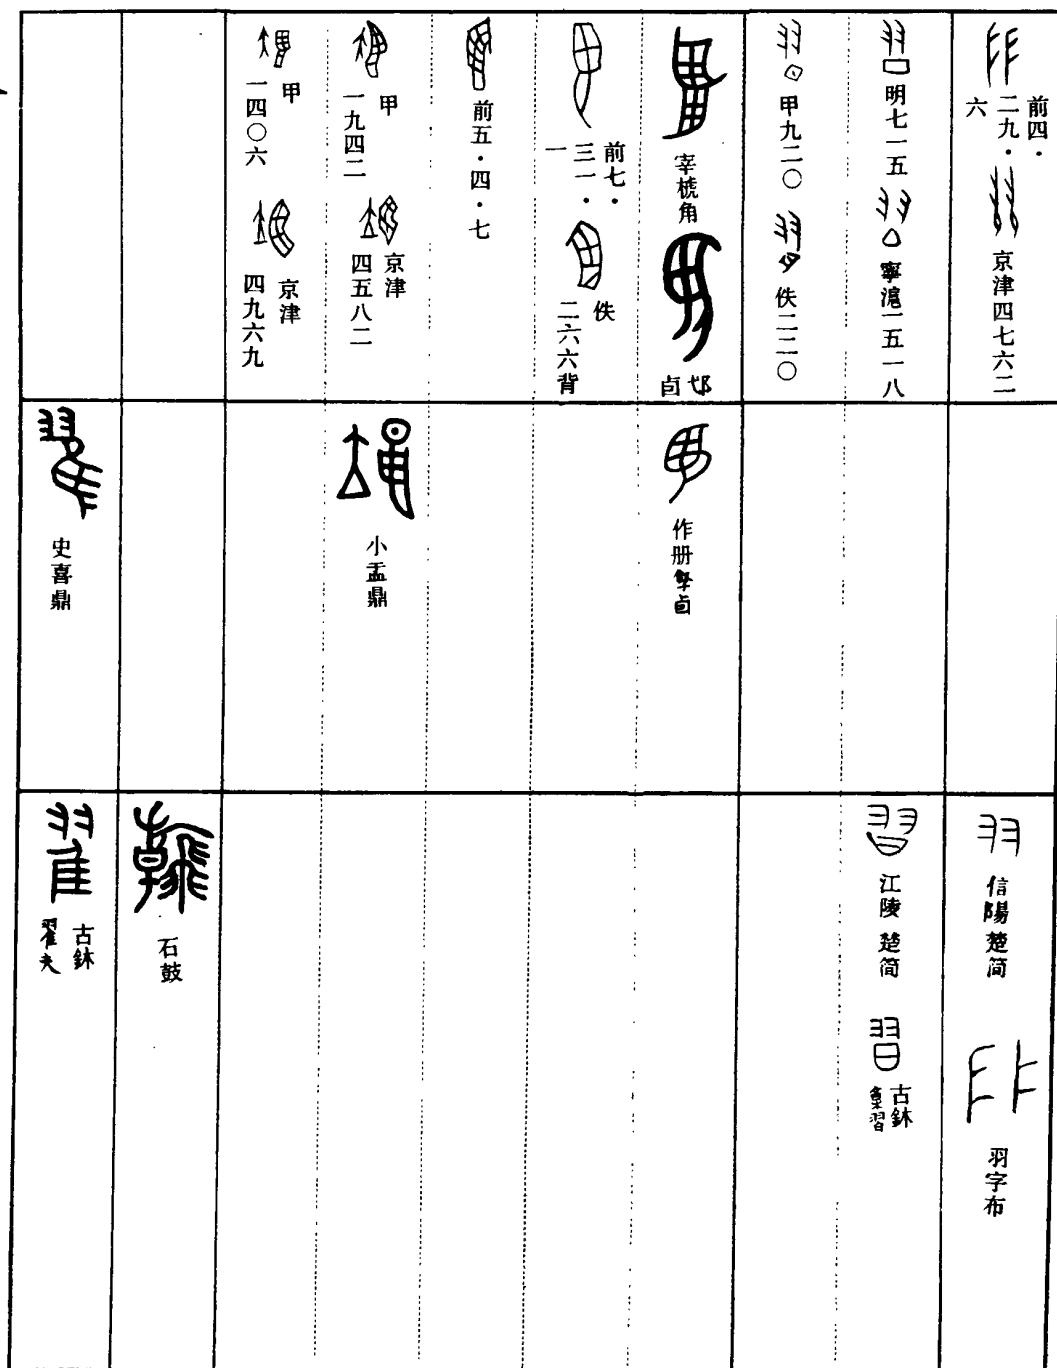 前四・
二九・
六
京津四七六二
明七一五
寧滬一五一八
甲九二〇
佚二二〇
宰椃角
卣
前七・
三一・
一
佚
二六六背
前五・四・七
甲
一九四二
京津
四五八二
甲
一四〇六
京津
四九六九
作册
卣
小盂鼎
史喜鼎
羽
信陽楚简
羽字布
習
江陵楚简
習
古鉢
習
石鼓
翟
古鉢
翟夫